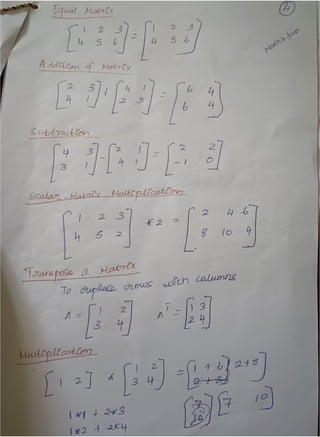 Equal Matrix
4
Namrajan
[1 2 3
4 5 6] = [1 2 3
4 5 6]
Addition of Matrix
[2 3
4 1] + [4 1
2 3] = [6 4
6 4]
Subtraction
[4 3
3 1] - [2 1
4 1] = [2 2
-1 0]
Scalar Matrix Multiplication
[1 2 3
4 5 2] *2 = [2 4 6
8 10 4]
Transpose a Matrix
To replace rows with columns
A = [1 2
3 4] Aᵀ = [1 3
2 4]
Multiplication
[1 2] * [1 2
3 4] = [1 + 6 2+8]
1*1 + 2*3
1*2 + 2*4
[7 10]